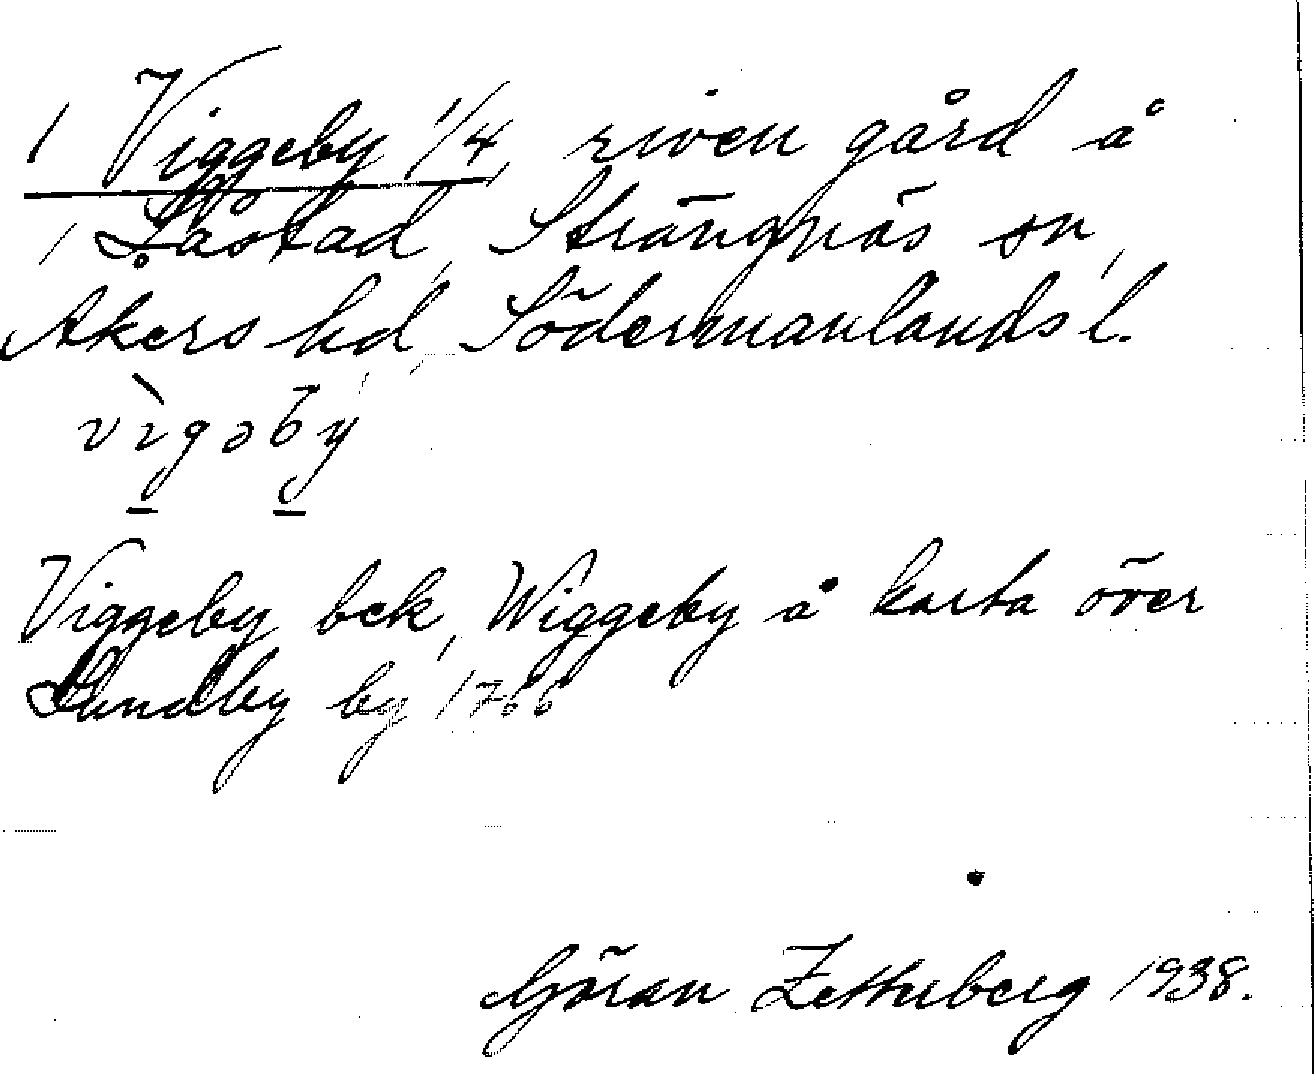 1 Viggeby 1/4, riven gård å
1 Låstad, Strängnäs sn,
Åkers hd, Södermanlands l.
vìgəby
Viggeby bek, Wiggeby å karta över
Lundby by 1766
Göran Zetterberg 1938.